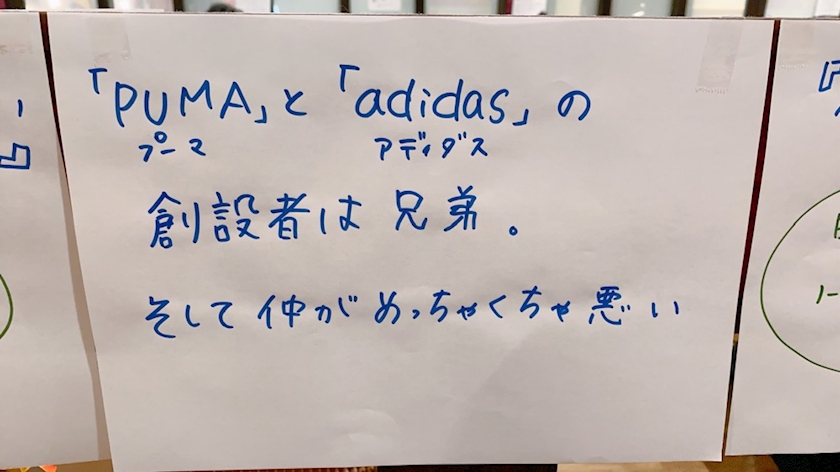 「PUMA」と「adidas」の
プーマ アディダス
創設者は兄弟。
そして仲がめっちゃくちゃ悪い